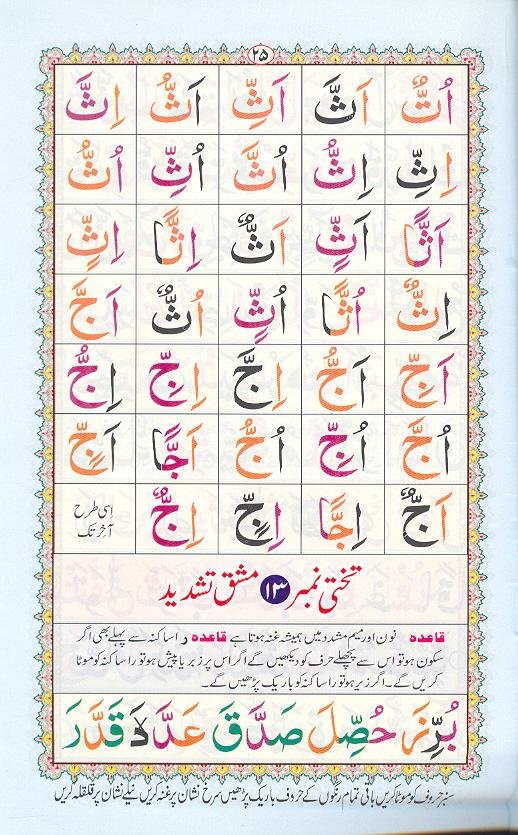 ۲۵
اُتٌّ اَثَّ اَثِّ اَثُّ اِثَّ
اِثِّ اِثُّ اُثَّ اُثِّ اُثُّ
اَثًّا اَثٍّ اَثٌّ اِثًّا اِثٍّ
اِثٌّ اُثًّا اُثٍّ اُثٌّ اَجَّ
اَجِّ اَجُّ اِجَّ اِجِّ اِجُّ
اُجَّ اُجِّ اُجُّ اَجًّا اَجٍّ
اَجٌّ اِجًّا اِجٍّ اِجٌّ اسی طرح
آخر تک
تختی نمبر ۱۳ مشق تشدید
قاعدہ نون اور میم مشدد میں ہمیشہ غنہ ہوتا ہے قاعدہ را ساکنہ سے پہلے بھی اگر
سکون ہو تو اس سے پچھلے حرف کو دیکھیں گے اگر اس پر زبر یا پیش ہو تو را ساکنہ کو موٹا
کریں گے۔ اگر زیر ہو تو را ساکنہ کو باریک پڑھیں گے۔
بُرِّزَ حُصِّلَ صَدَّقَ قَدَّرَ
سبز حروف کو موٹا کریں باقی تمام رنگوں کے حروف باریک پڑھیں سرخ نشان پر غنہ کریں نیلے نشان پر قلقلہ کریں